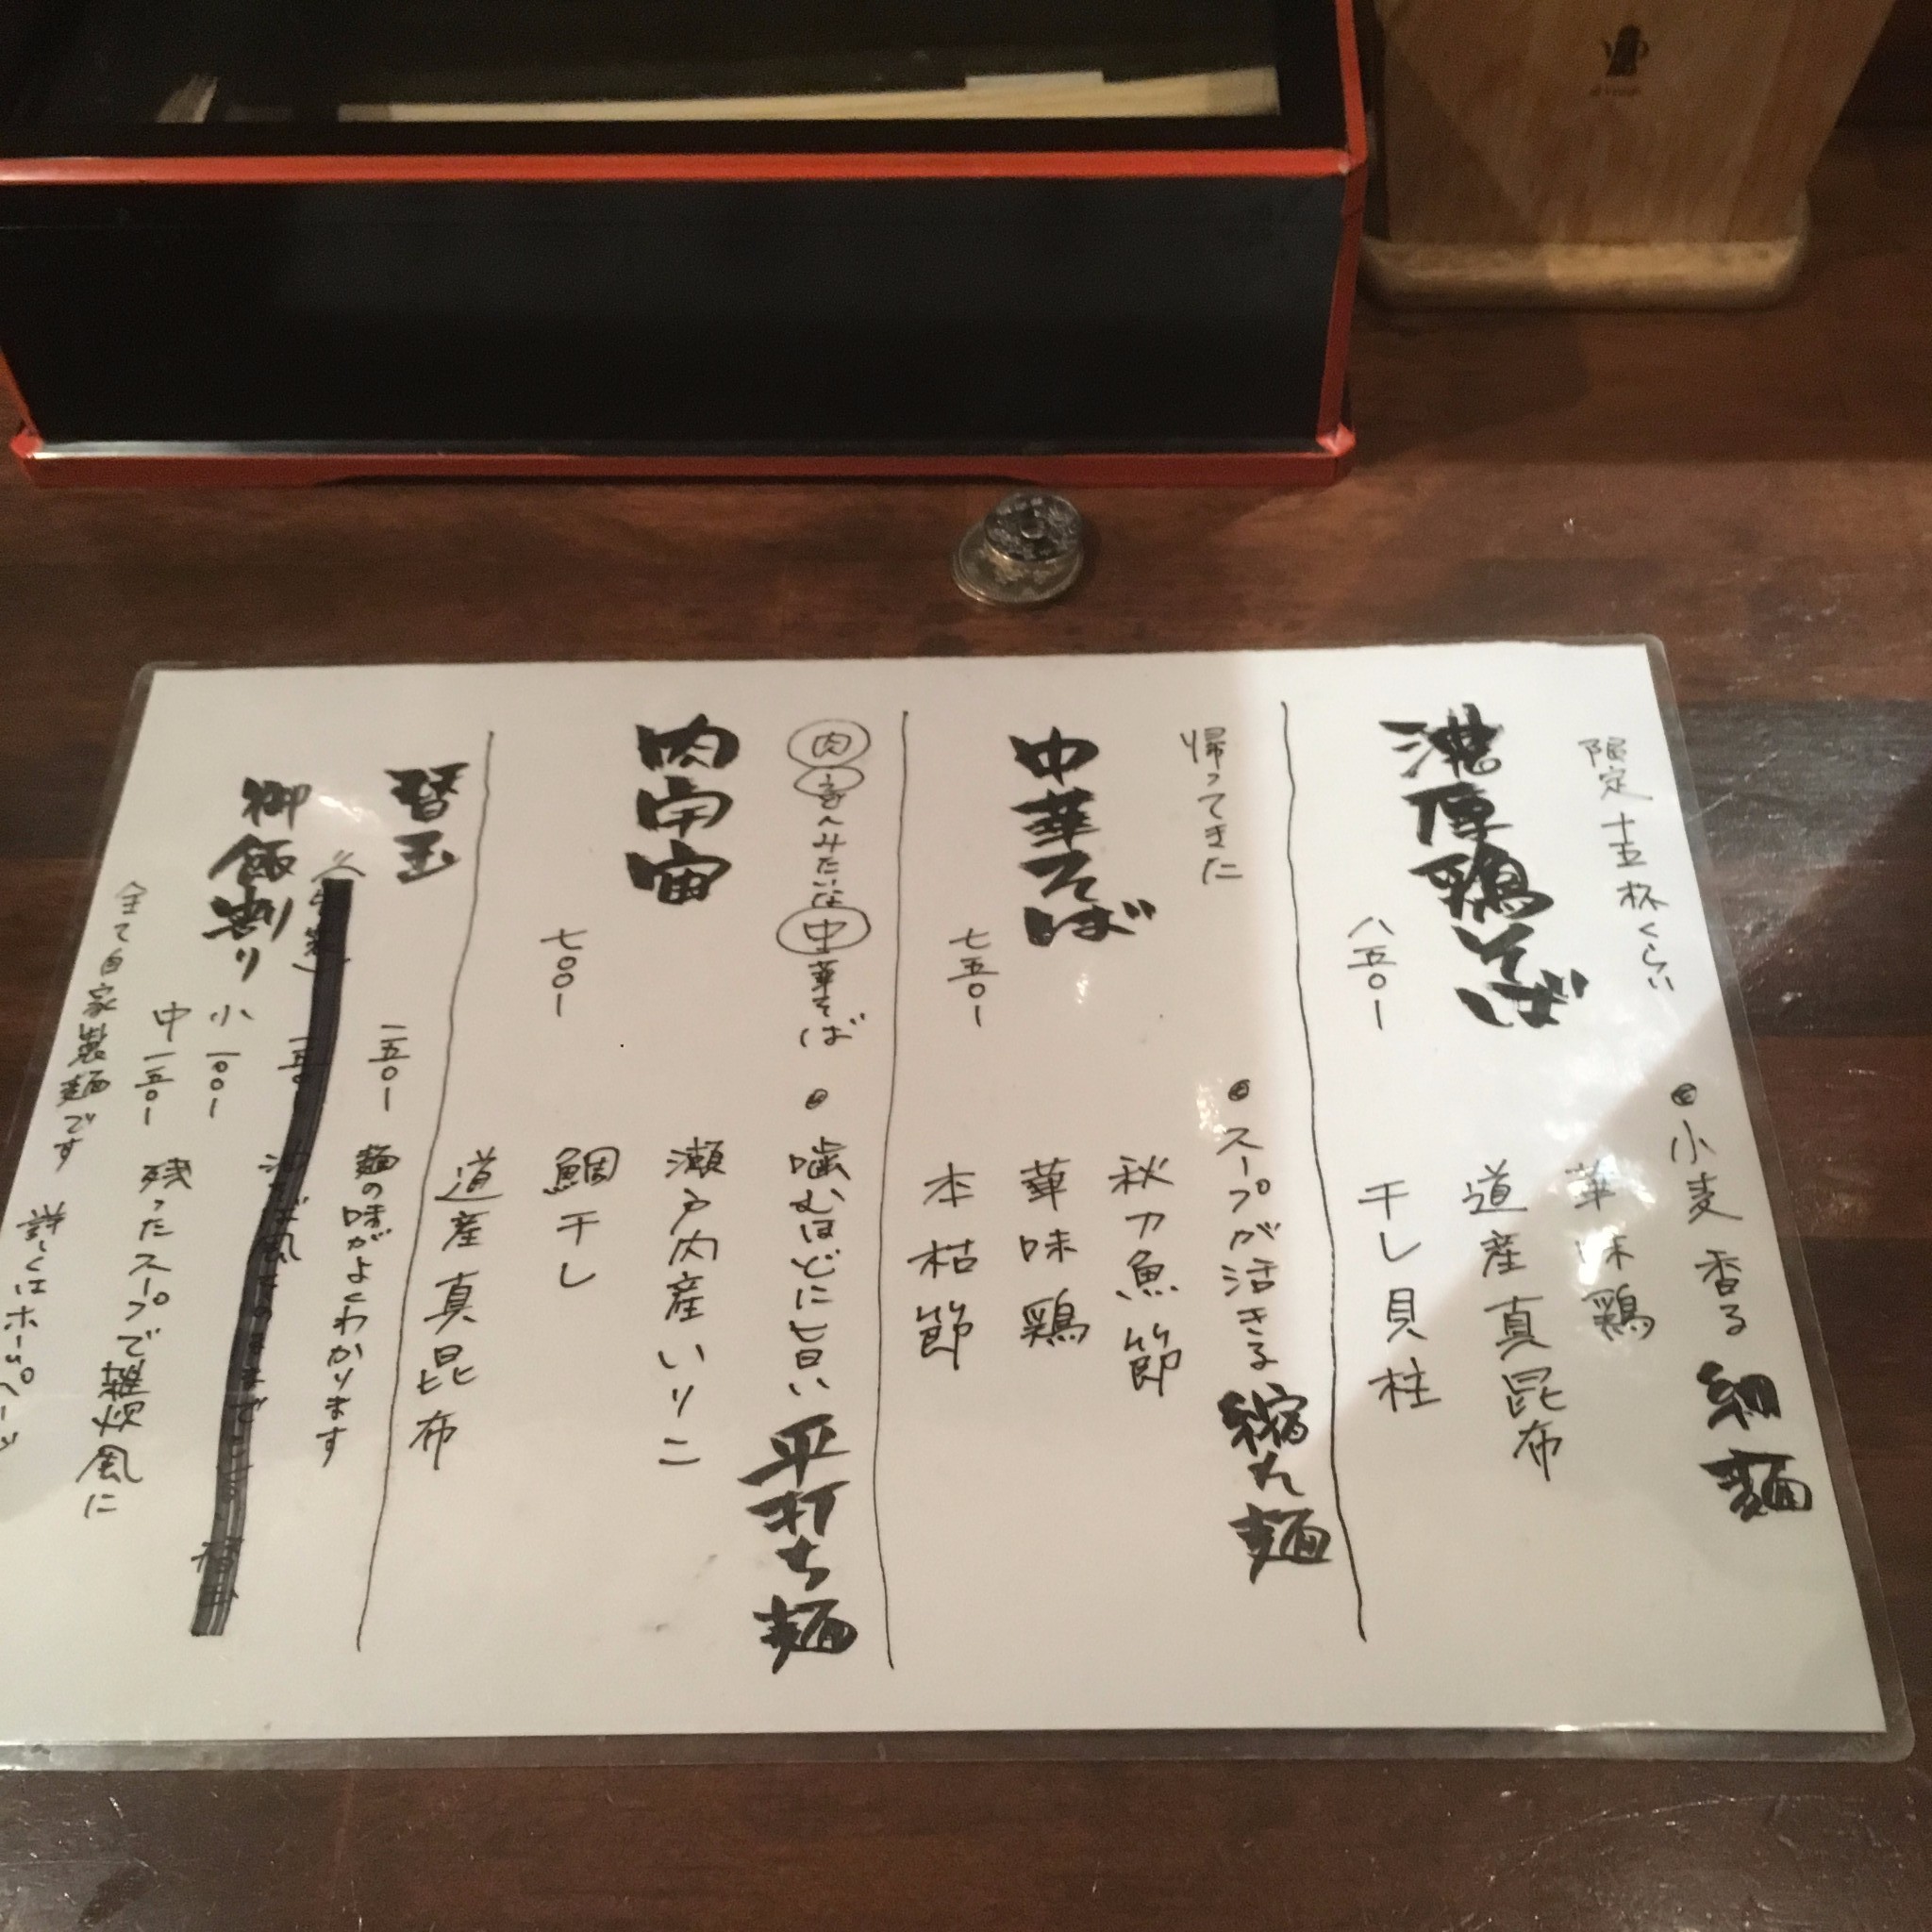 限定十五杯くらい
濃厚鶏そば
八五〇ー
小麦香る 細麺
華味鶏
道産真昆布
干し貝柱
帰ってきた
中華そば
七五〇ー
スープが活きる 縮れ麺
秋刀魚節
華味鶏
本枯節
みたいな中華そば
肉
七〇〇ー
噛むほどに旨い 平打ち麺
瀬戸内産いりこ
鯛干し
道産真昆布
替玉
一五〇ー
麺の味がよくわかります
御飯割り
小 一〇〇ー
中 一五〇ー
残ったスープで雑炊風に
全て自家製麺です
詳しくはホームページ